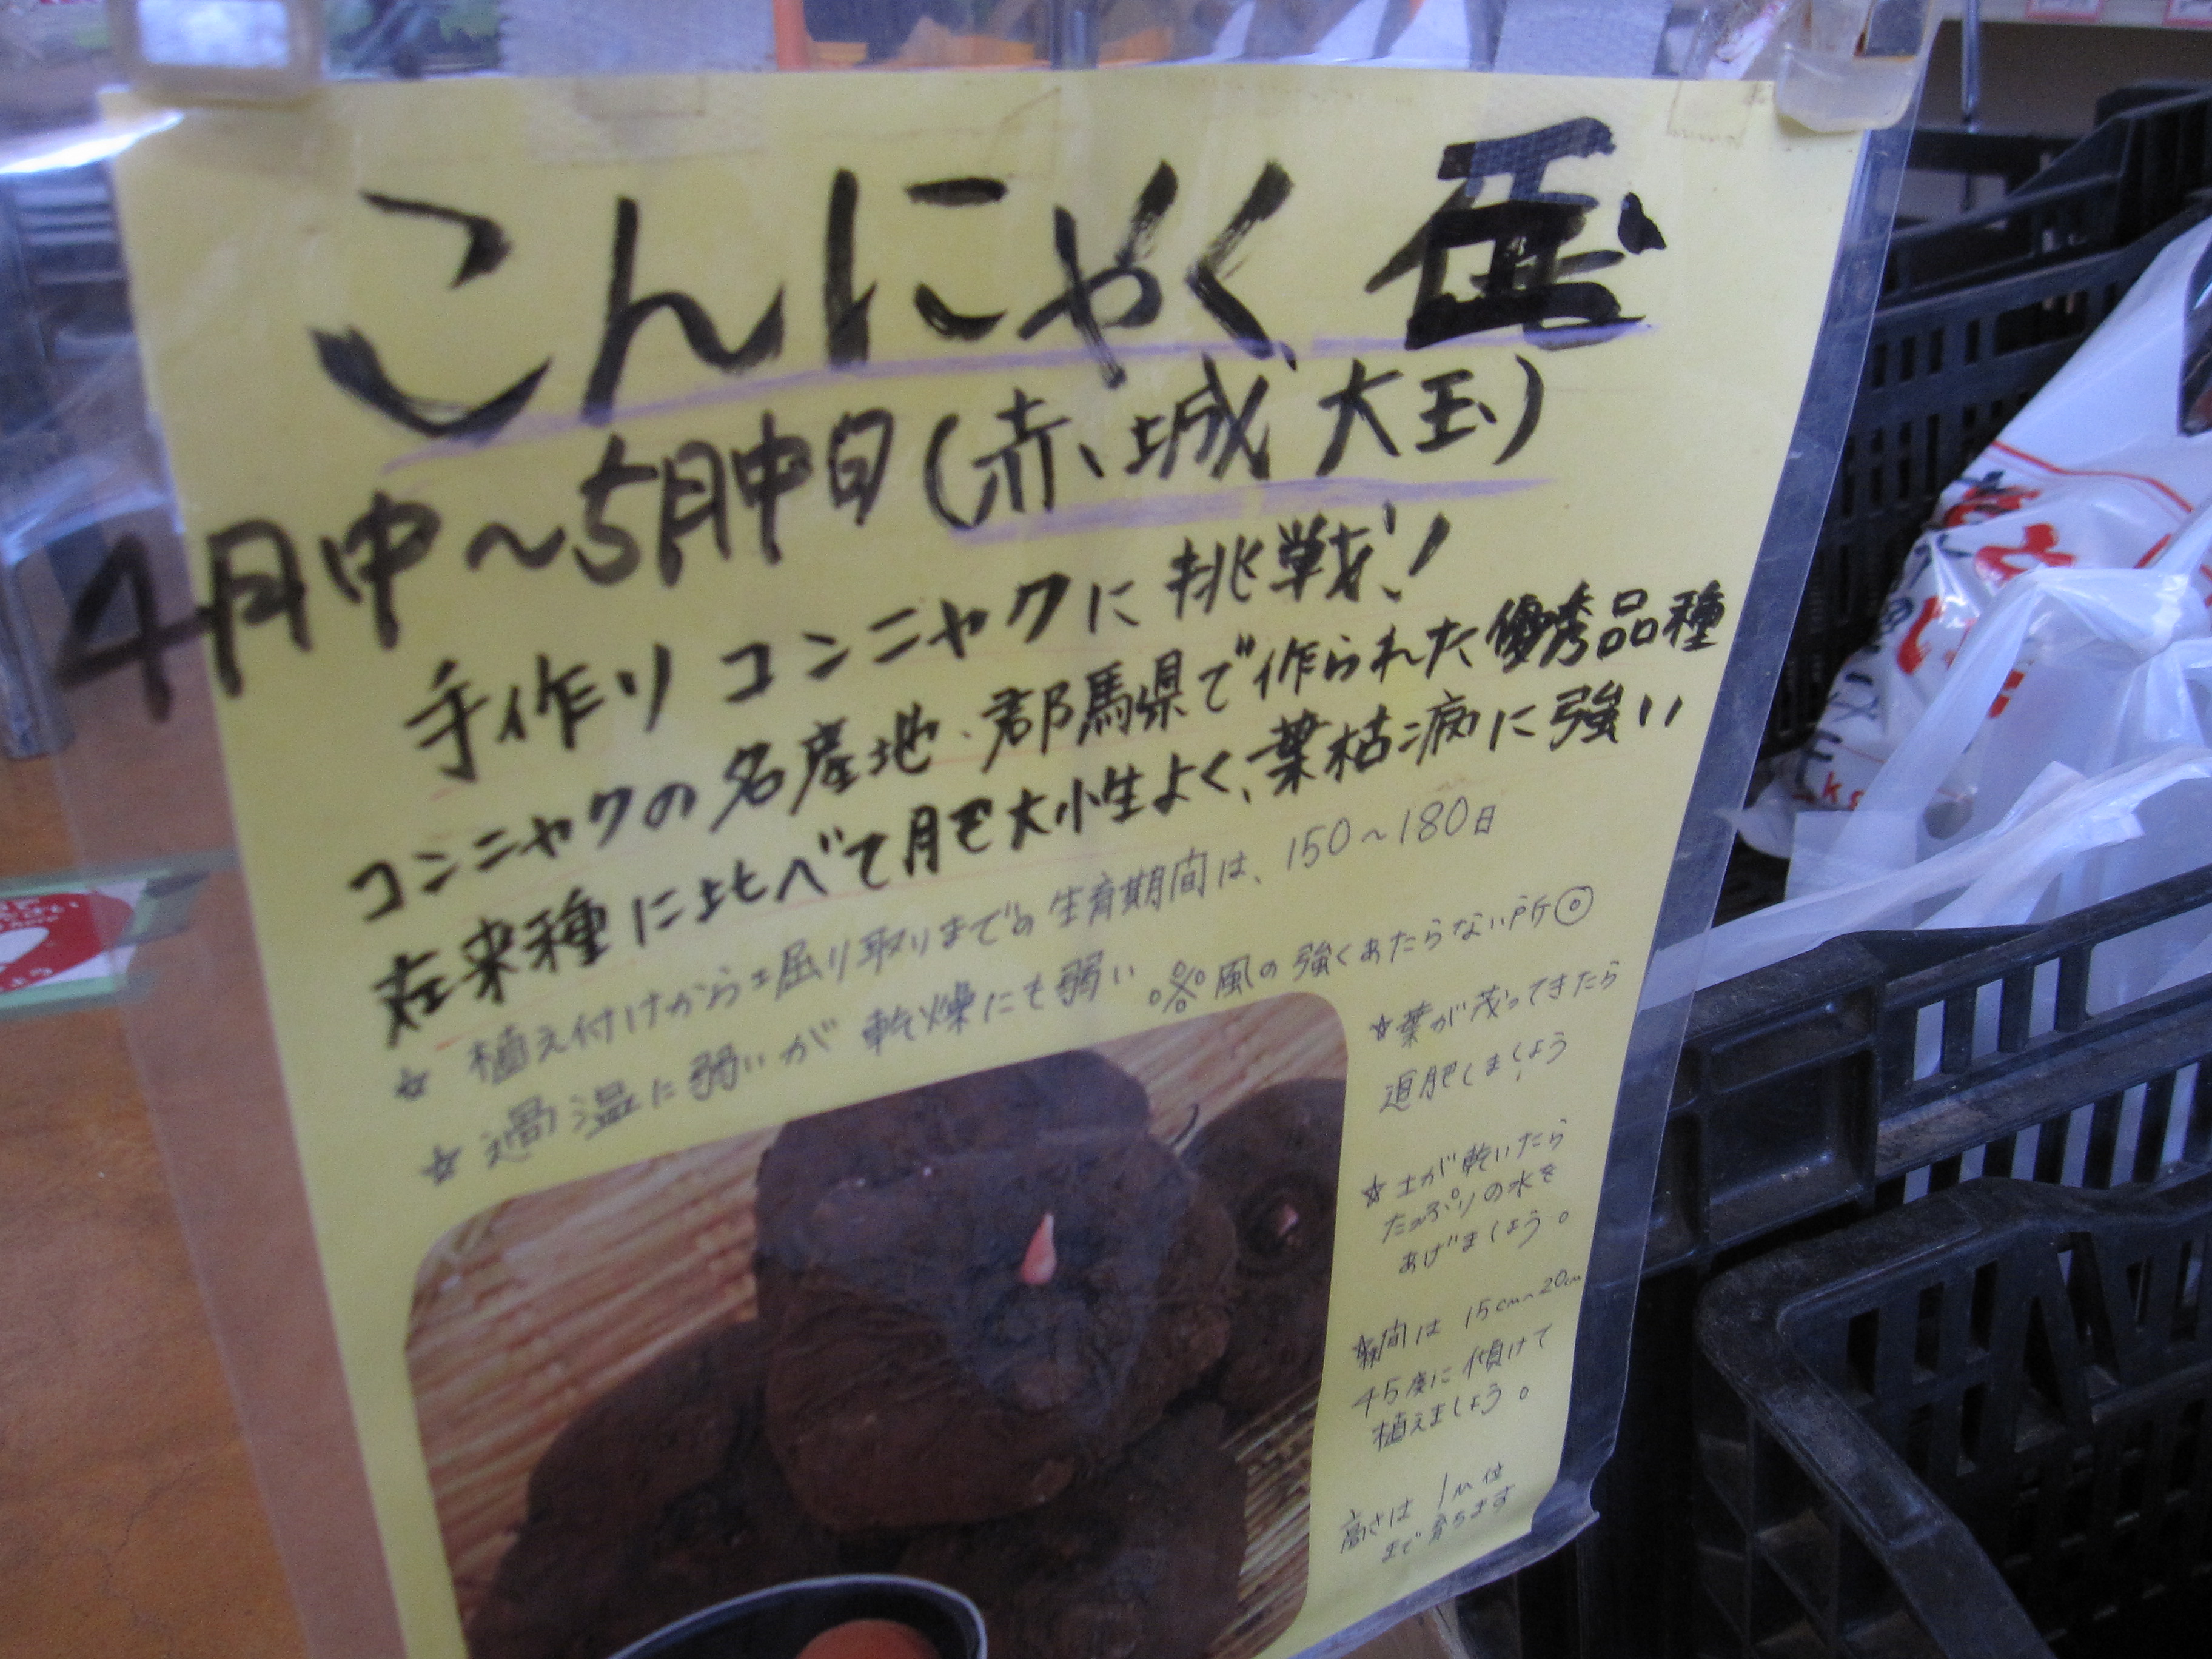 こんにゃく玉
4月中〜5月中旬(赤城大玉)
手作りコンニャクに挑戦!
コンニャクの名産地・郡馬県で作られた優秀品種
在来種に比べて肥大性よく、葉枯病に強い
☆ 植え付けから堀り取りまでの生育期間は、150〜180日
☆ 過湿に弱いが 乾燥にも弱い ※風の強くあたらない所◎
☆葉が茂ってきたら
追肥しましょう
☆土が乾いたら
たっぷりの水を
あげましょう。
☆株間は 15cm〜20cm
45度に傾けて
植えましょう。
高さは 1m位
まで育ちます